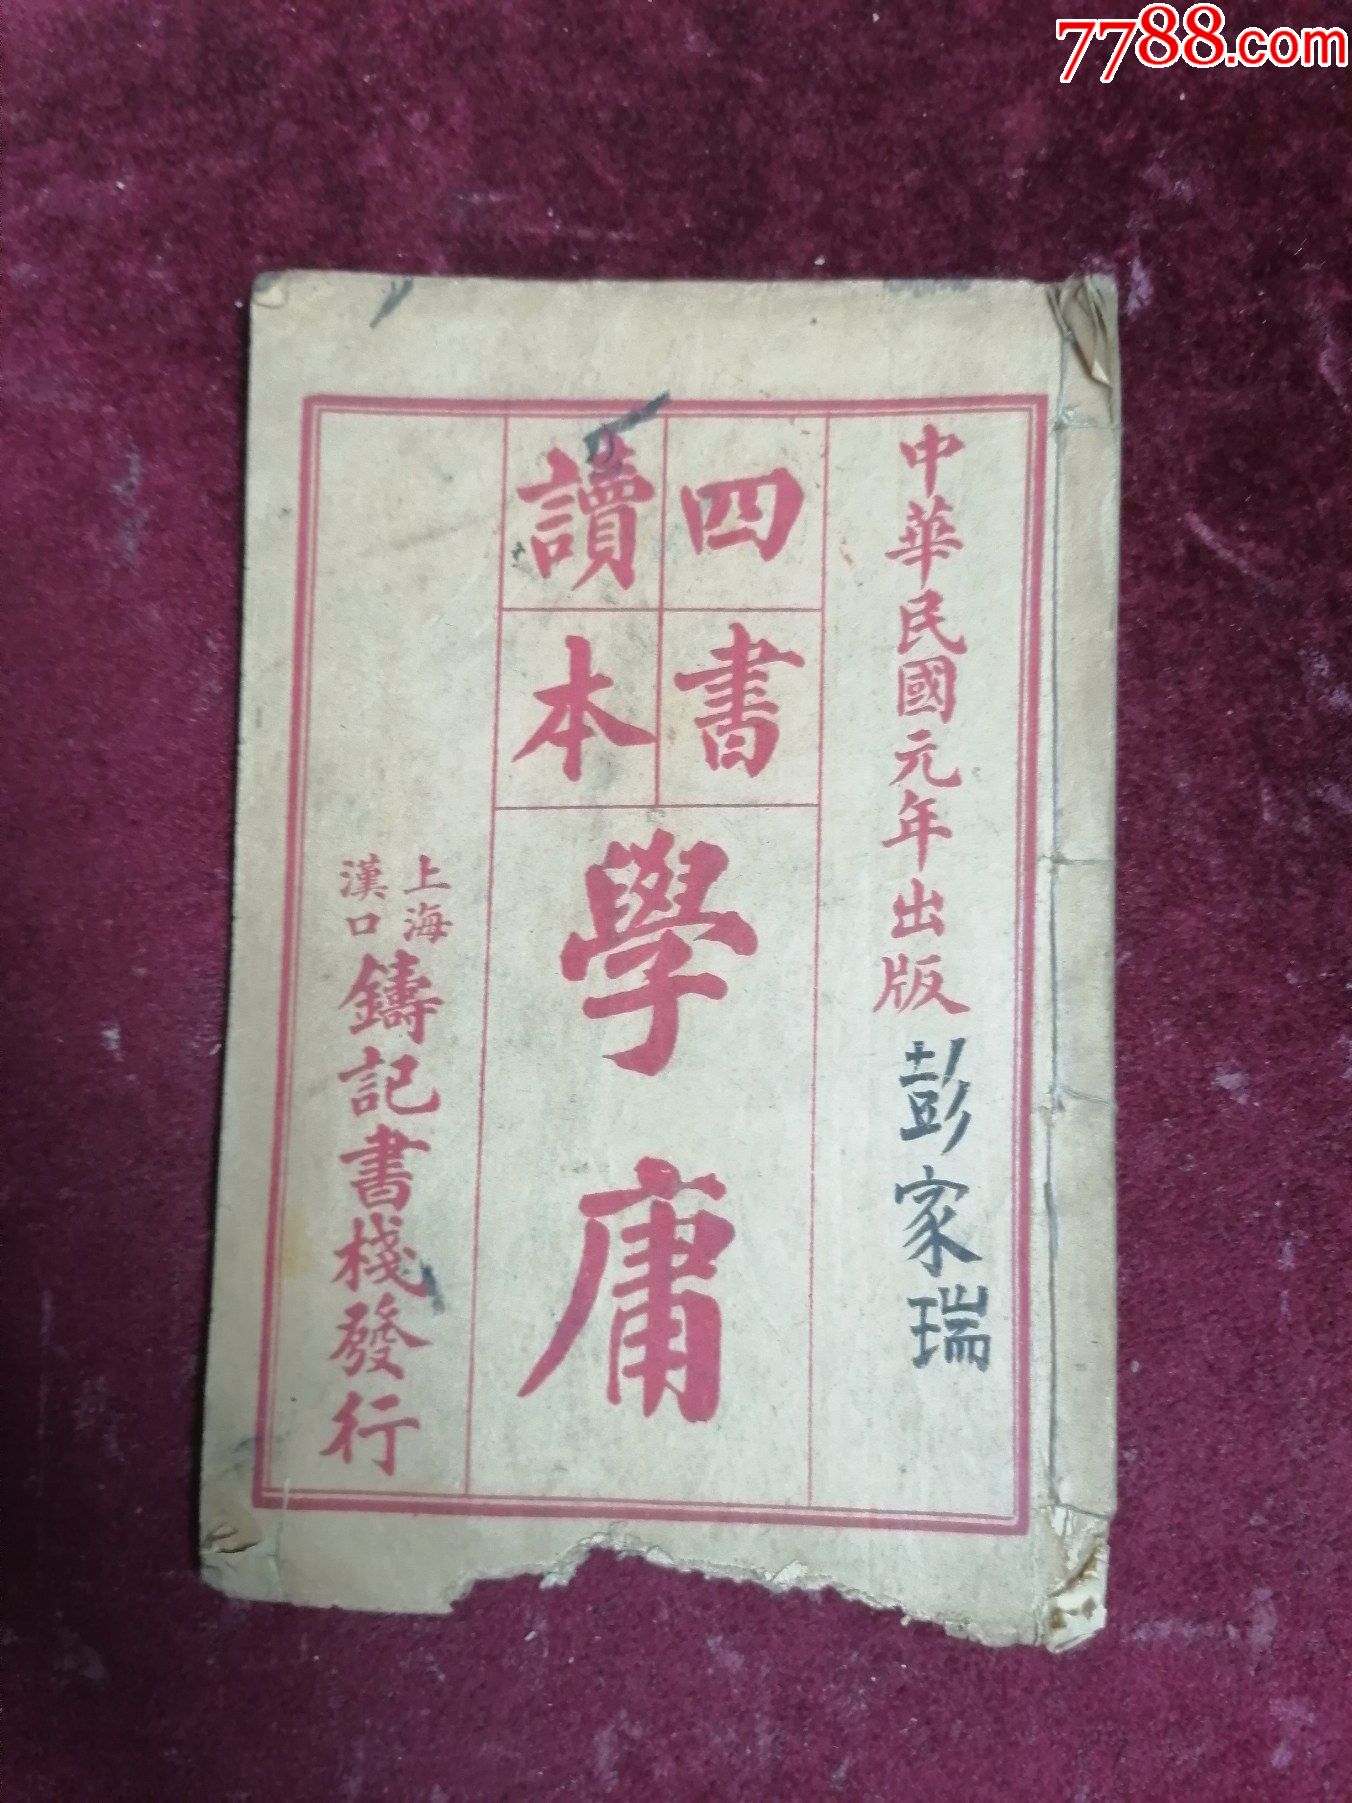 7788.com
中華民國元年出版
彭家瑞
四書
讀本
學庸
上海
漢口
鑄記書棧發行